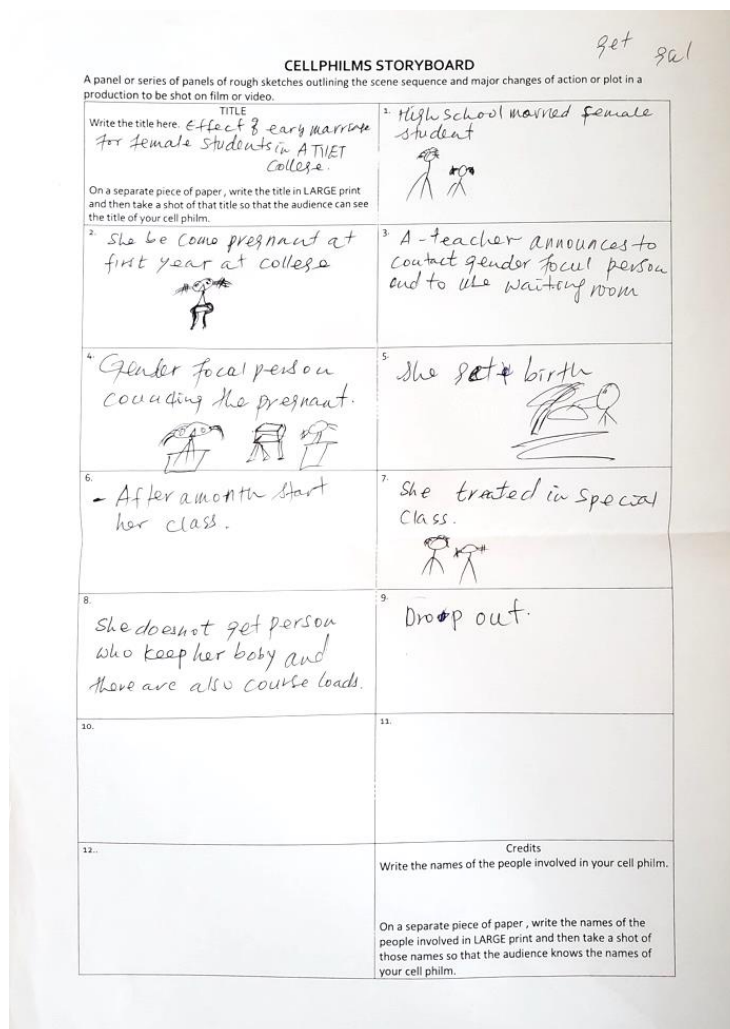 get gal
CELLPHILMS STORYBOARD
A panel or series of panels of rough sketches outlining the scene sequence and major changes of action or plot in a
production to be shot on film or video.
TITLE
Write the title here. Effect of early marriage
for female students in ATVET
College.
On a separate piece of paper , write the title in LARGE print
and then take a shot of that title so that the audience can see
the title of your cell philm.
1. High school married female
student
2. She be come pregnant at
first year at college
3. A-teacher announces to
contact gender focul person
and to use waiting room
4. Gender focal person
the pregnant.
5. She birth
6. - After a month start
her class.
7. She treated in special
class.
8. She doesnot get person
who keep her baby and
there are also course loads.
9. Drop out.
10.
11.
12..
Credits
Write the names of the people involved in your cell philm.
On a separate piece of paper , write the names of the
people involved in LARGE print and then take a shot of
those names so that the audience knows the names of
your cell philm.